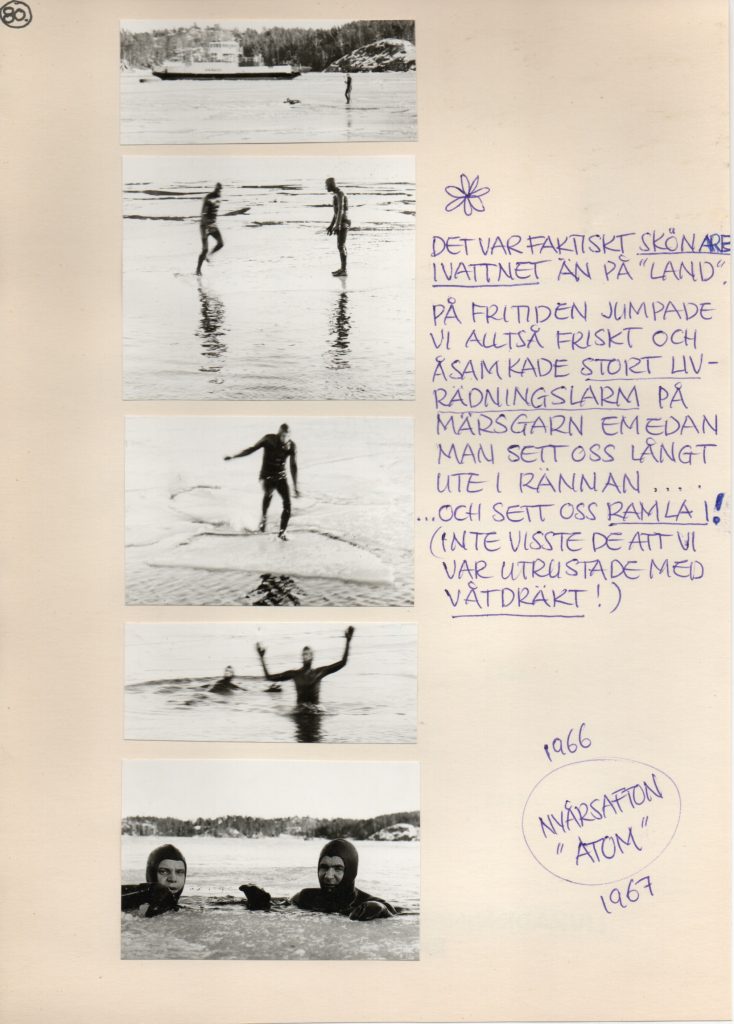 80.
DET VAR FAKTISKT SKÖNARE
I VATTNET ÄN PÅ "LAND".
PÅ FRITIDEN JUMPADE
VI ALLTSÅ FRISKT OCH
ÅSAMKADE STORT LIV-
RÄDNINGSLARM PÅ
MÄRSGARN EMEDAN
MAN SETT OSS LÅNGT
UTE I RÄNNAN ....
...OCH SETT OSS RAMLA I!
(INTE VISSTE DE ATT VI
VAR UTRUSTADE MED
VÅTDRÄKT!)
1966
NYÅRSAFTON
"ATOM"
1967